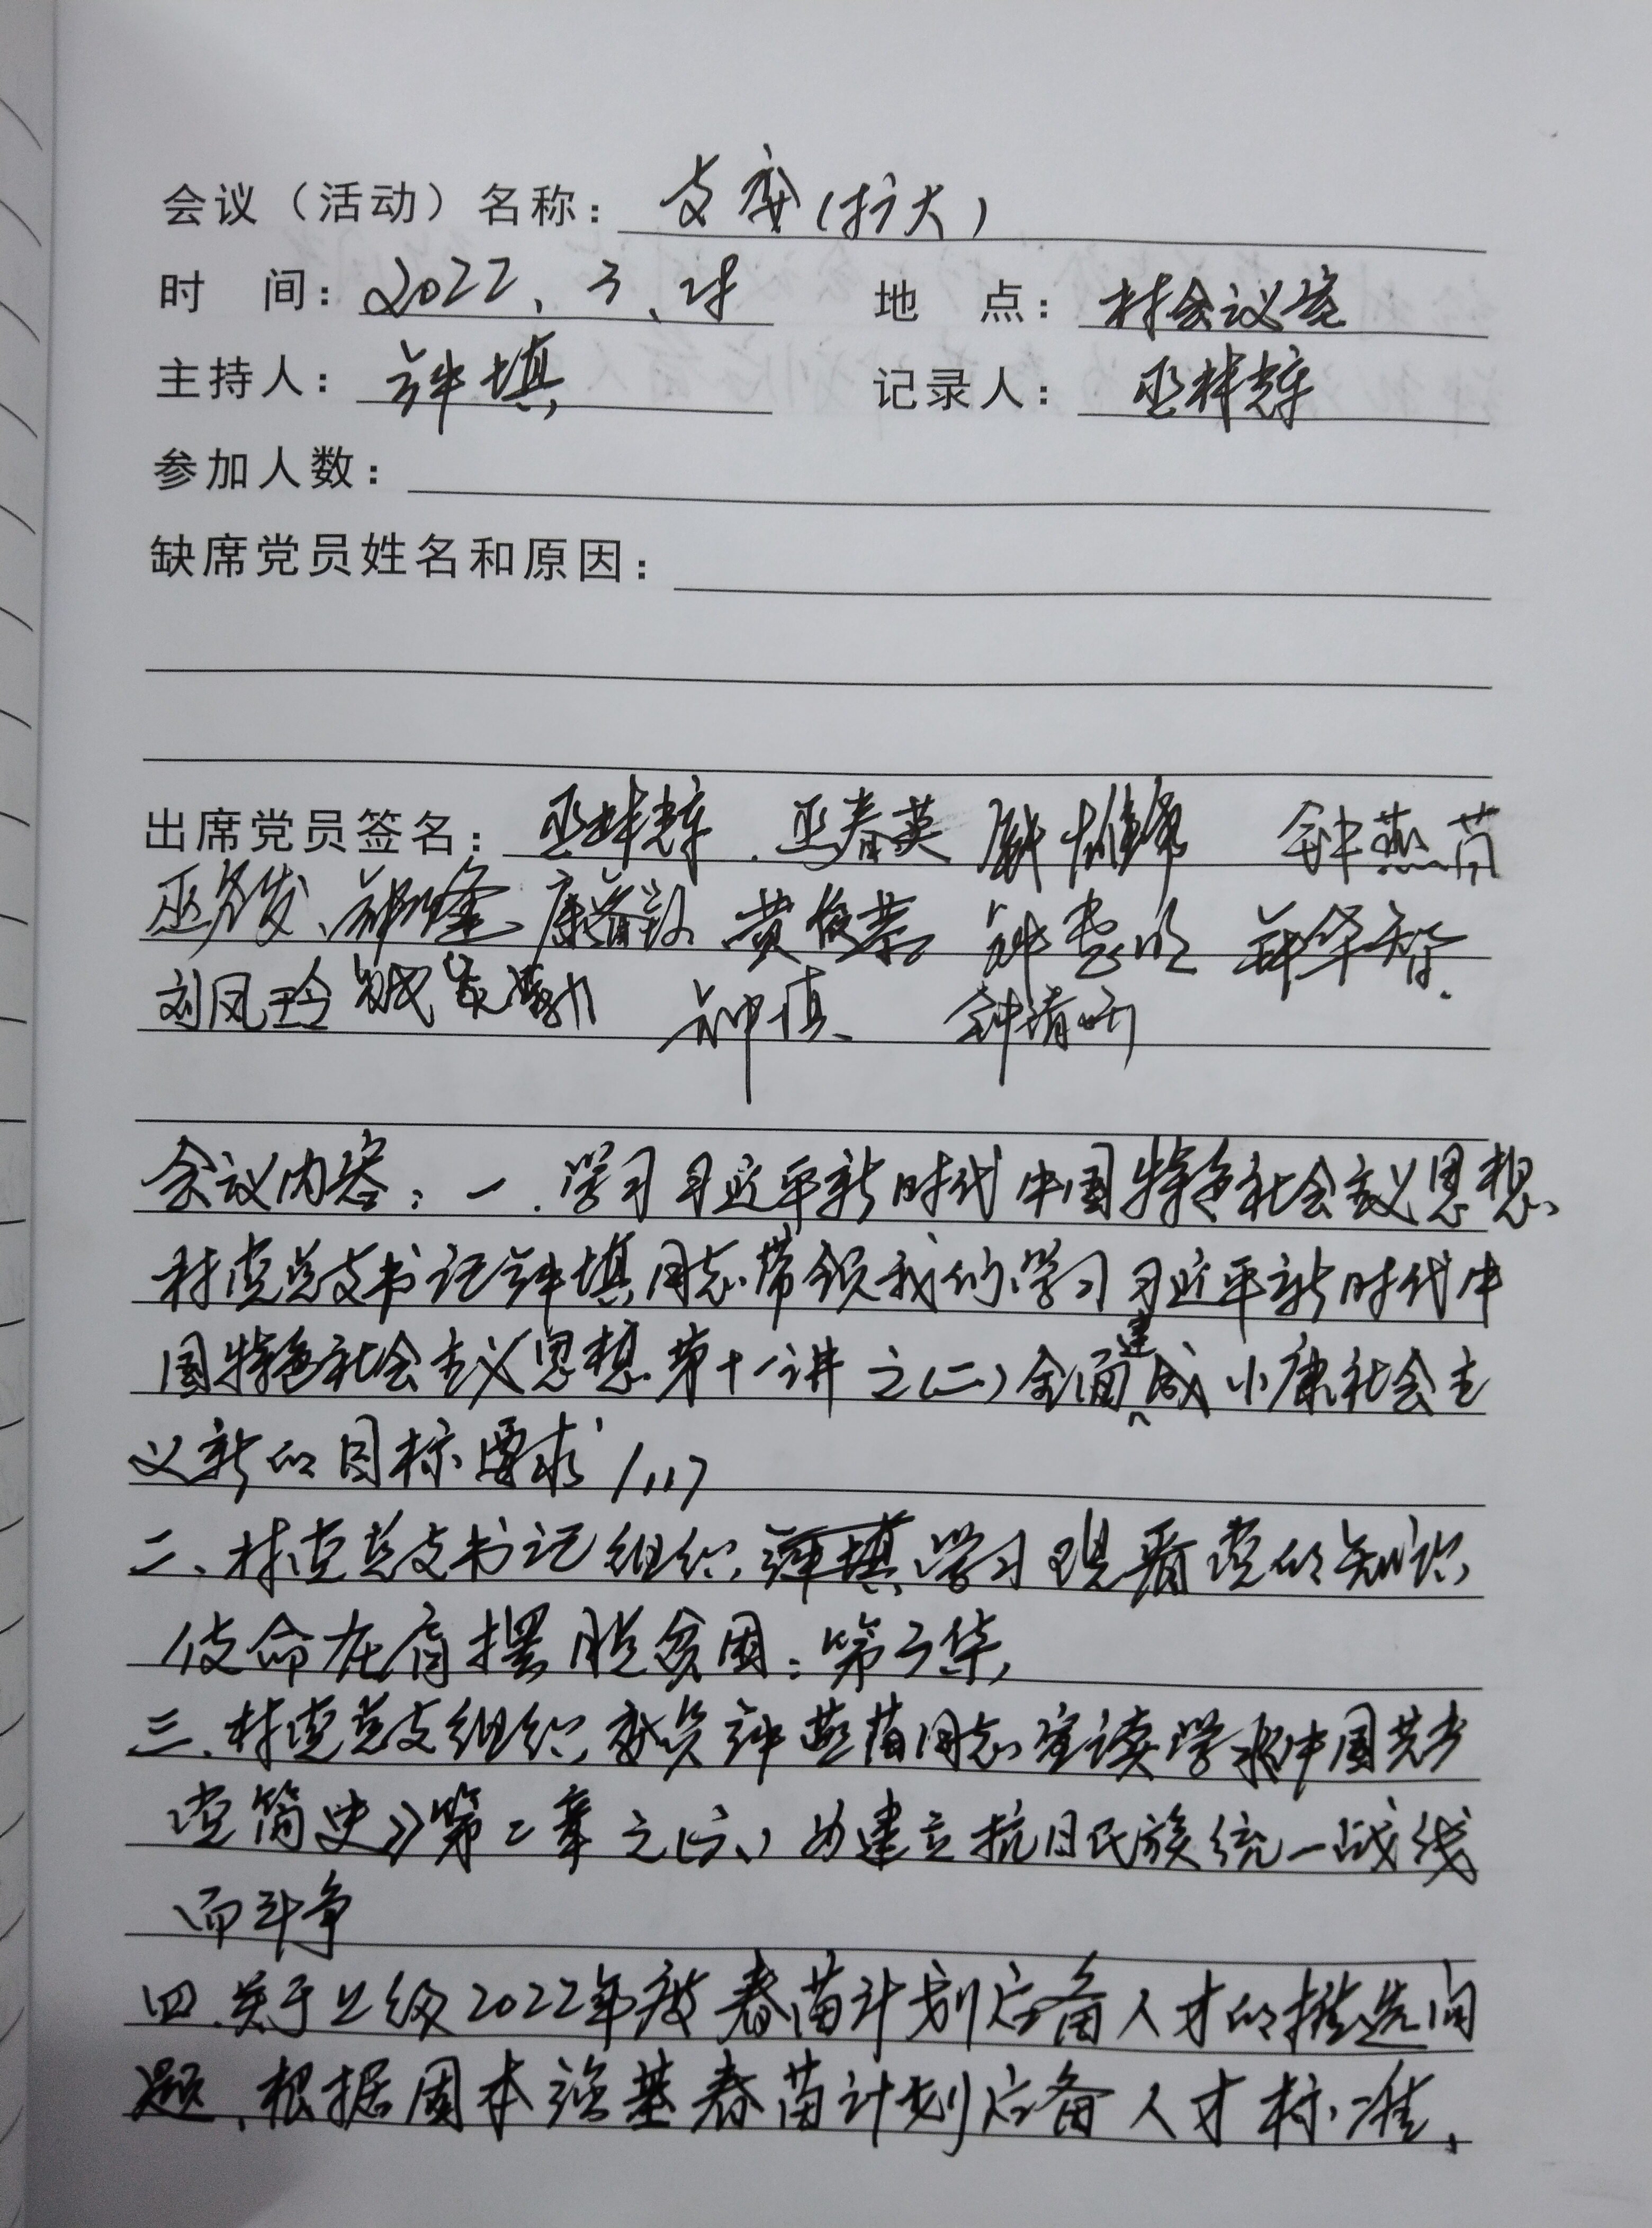 会议（活动）名称：支委（扩大）
时　间：2022、3、
地　点：村会议室
主持人：钟填
记录人：巫祥辉
参加人数：
缺席党员姓名和原因：
出席党员签名：巫祥辉 . 巫春英 钟燕苗
巫 发、康 黄俊 钟 明 钟华
刘凤玲 钟填 钟清
会议内容：一.学习习近平新时代中国特色社会主义思想、
村党总支书记钟填同志带领我们学习习近平新时代中
国特色社会主义思想第十一讲之（二）全面建成小康社会主
义新的目标要求
二、村党总支书记组织钟填学习观看党的知识
使命在肩摆脱贫困：第三集，
三、村党总支组织 钟燕苗同志宣读学习中国共产
党简史》第二章之（六）为建立抗日民族统一战线
而斗争
四.关于上级2022年度春苗计划后备人才的推选问
题、根据固本强基春苗计划后备人才标准，